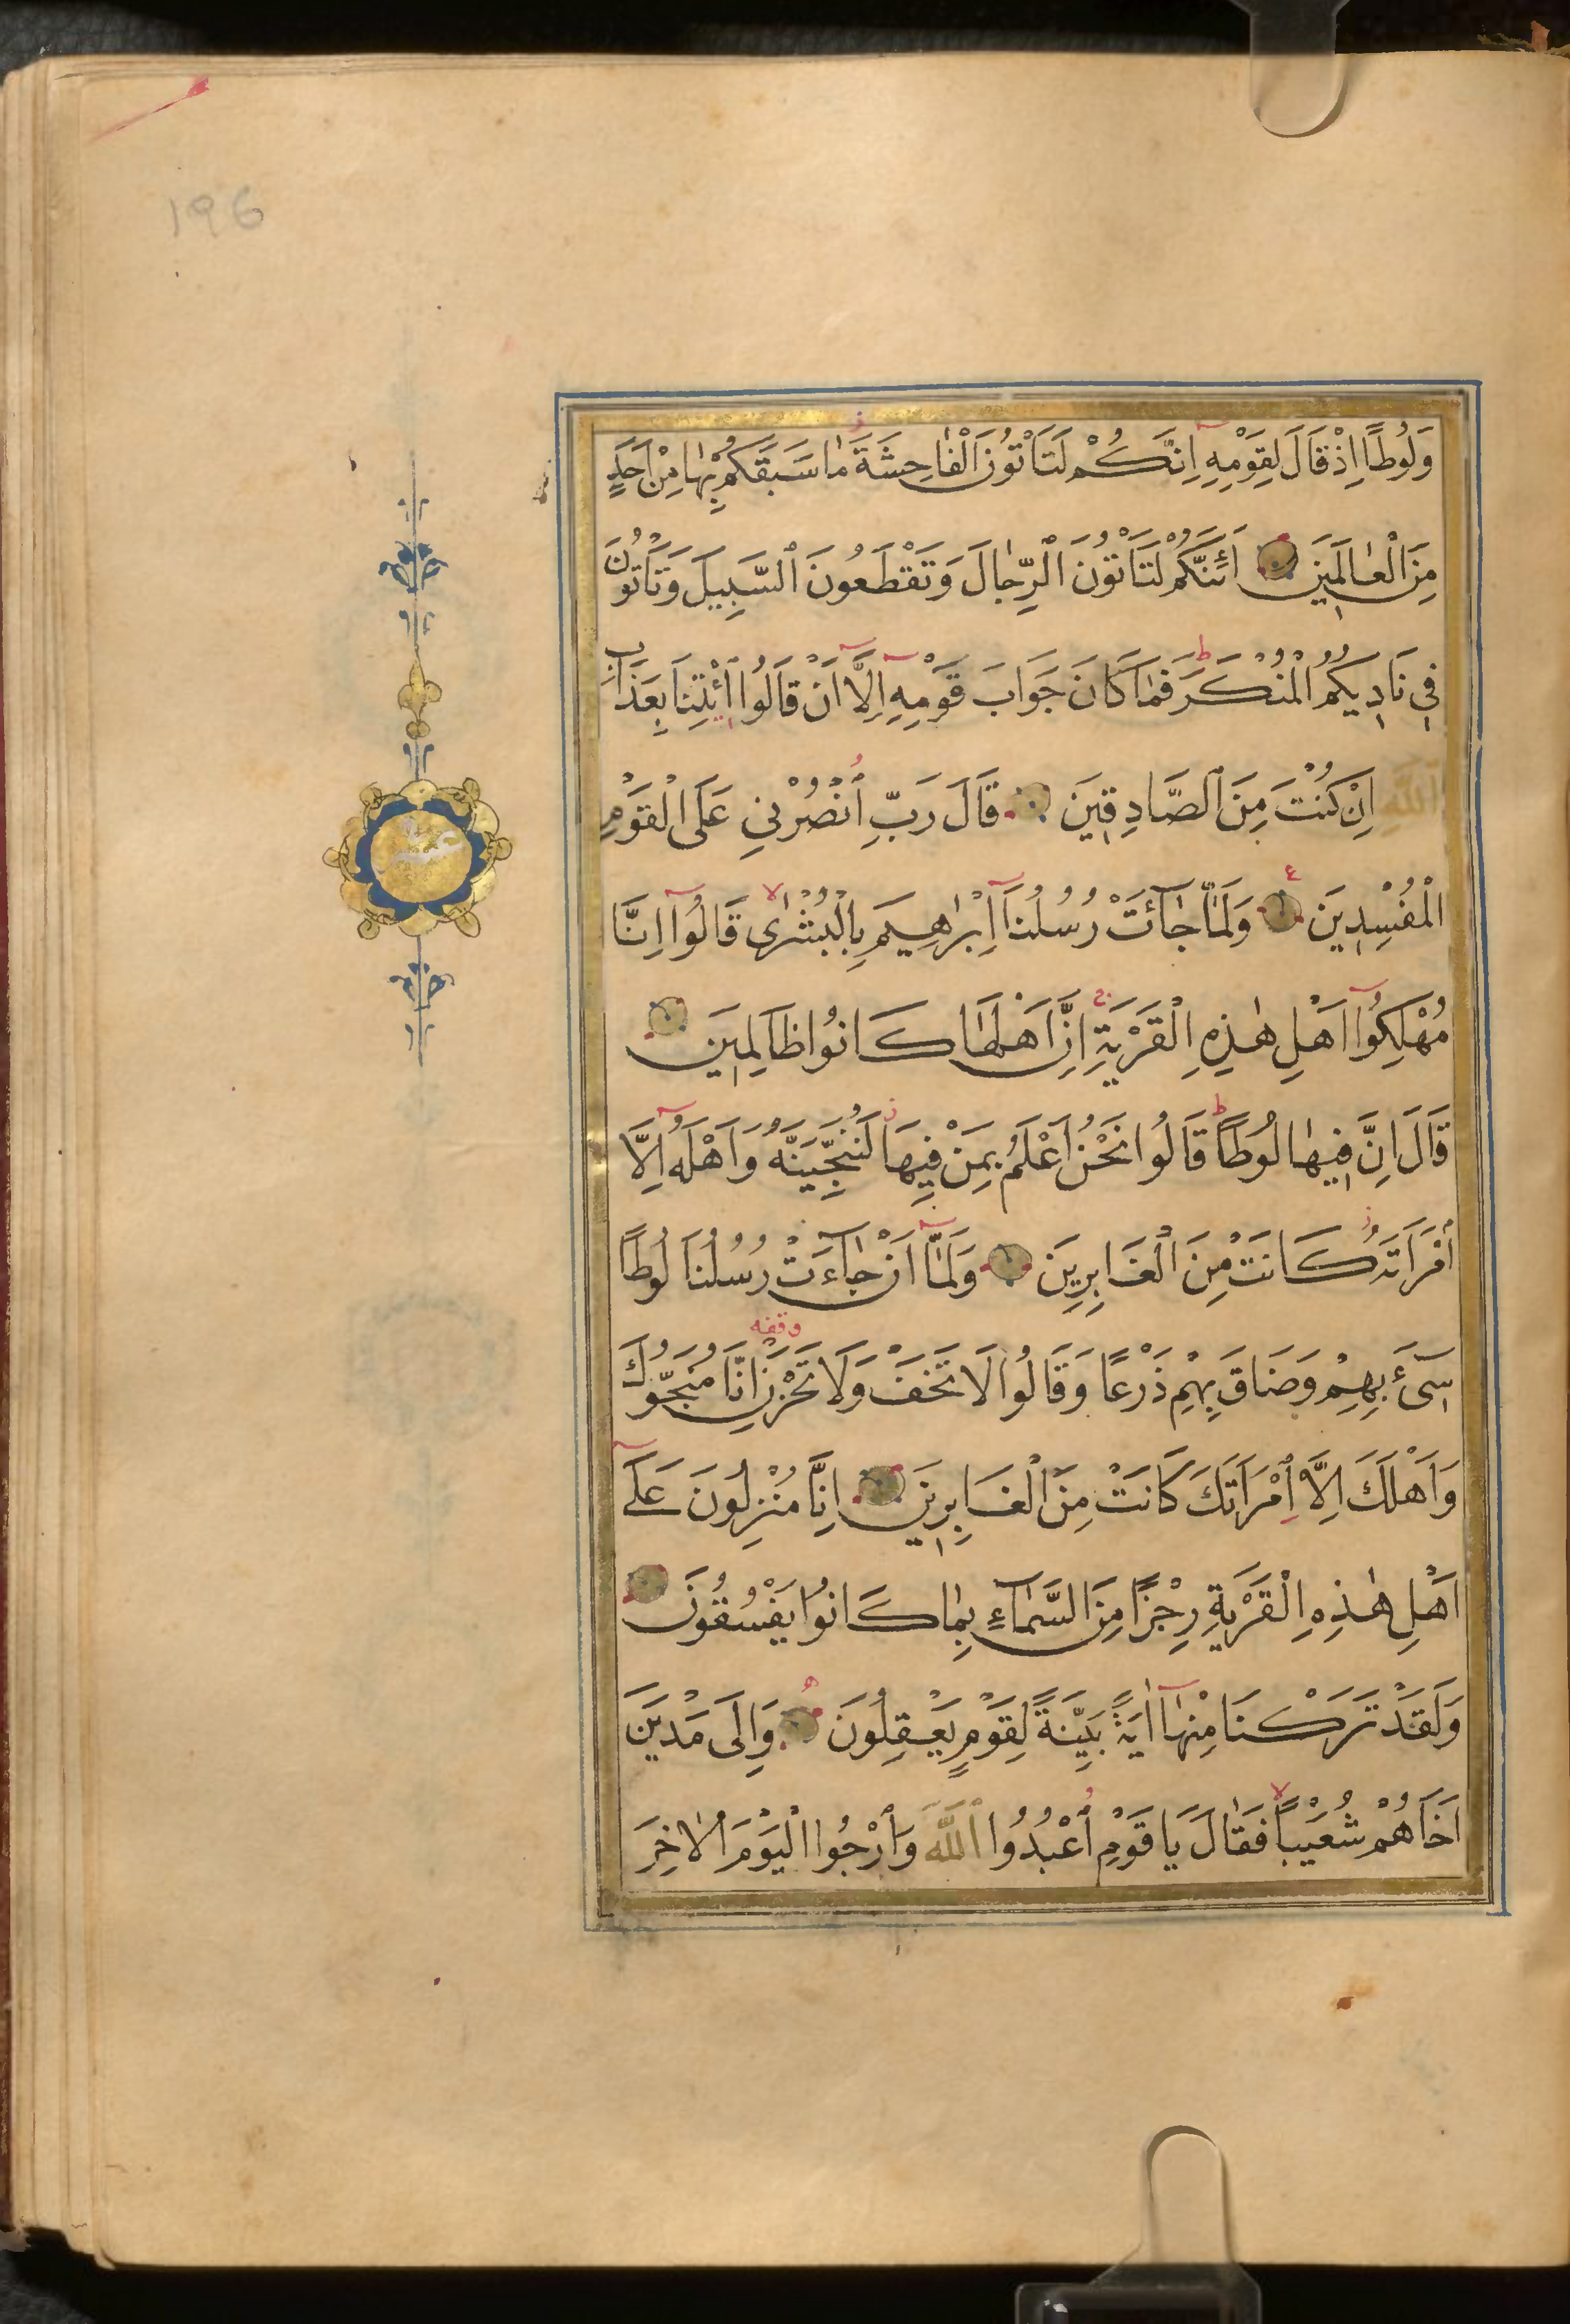 196
وَلُوطًا اِذْ قَالَ لِقَوْمِهِ اِنَّكُمْ لَتَأْتُونَ الْفَاحِشَةَ مَا سَبَقَكُمْ بِهَا مِنْ اَحَدٍ
مِنَ الْعَالَمِينَ اَئِنَّكُمْ لَتَأْتُونَ الرِّجَالَ وَتَقْطَعُونَ السَّبِيلَ وَتَأْتُونَ
فِي نَادِيكُمُ الْمُنْكَرَ فَمَا كَانَ جَوَابَ قَوْمِهِ اِلَّا اَنْ قَالُوا ائْتِنَا بِعَذَابِ
اللّٰهِ اِنْ كُنْتَ مِنَ الصَّادِقِينَ قَالَ رَبِّ انْصُرْنِي عَلَى الْقَوْمِ
الْمُفْسِدِينَ وَلَمَّا جَائَتْ رُسُلُنَا اِبْرٰهِيمَ بِالْبُشْرٰى قَالُوا اِنَّا
مُهْلِكُوا اَهْلِ هٰذِهِ الْقَرْيَةِ اِنَّ اَهْلَهَا كَانُوا ظَالِمِينَ
قَالَ اِنَّ فِيهَا لُوطًا قَالُوا نَحْنُ اَعْلَمُ بِمَنْ فِيهَا لَنُنَجِّيَنَّهُ وَاَهْلَهُ اِلَّا
امْرَاَتَهُ كَانَتْ مِنَ الْغَابِرِينَ وَلَمَّا اَنْ جَاءَتْ رُسُلُنَا لُوطًا
سِىءَ بِهِمْ وَضَاقَ بِهِمْ ذَرْعًا وَقَالُوا لَا تَخَفْ وَلَا تَحْزَنْ اِنَّا مُنَجُّوكَ
وقفه
وَاَهْلَكَ اِلَّا امْرَاَتَكَ كَانَتْ مِنَ الْغَابِرِينَ اِنَّا مُنْزِلُونَ عَلَى
اَهْلِ هٰذِهِ الْقَرْيَةِ رِجْزًا مِنَ السَّمَاءِ بِمَا كَانُوا يَفْسُقُونَ
وَلَقَدْ تَرَكْنَا مِنْهَا اٰيَةً بَيِّنَةً لِقَوْمٍ يَعْقِلُونَ وَاِلَى مَدْيَنَ
اَخَاهُمْ شُعَيْبًا فَقَالَ يَا قَوْمِ اعْبُدُوا اللّٰهَ وَارْجُوا الْيَوْمَ الْاٰخِرَ